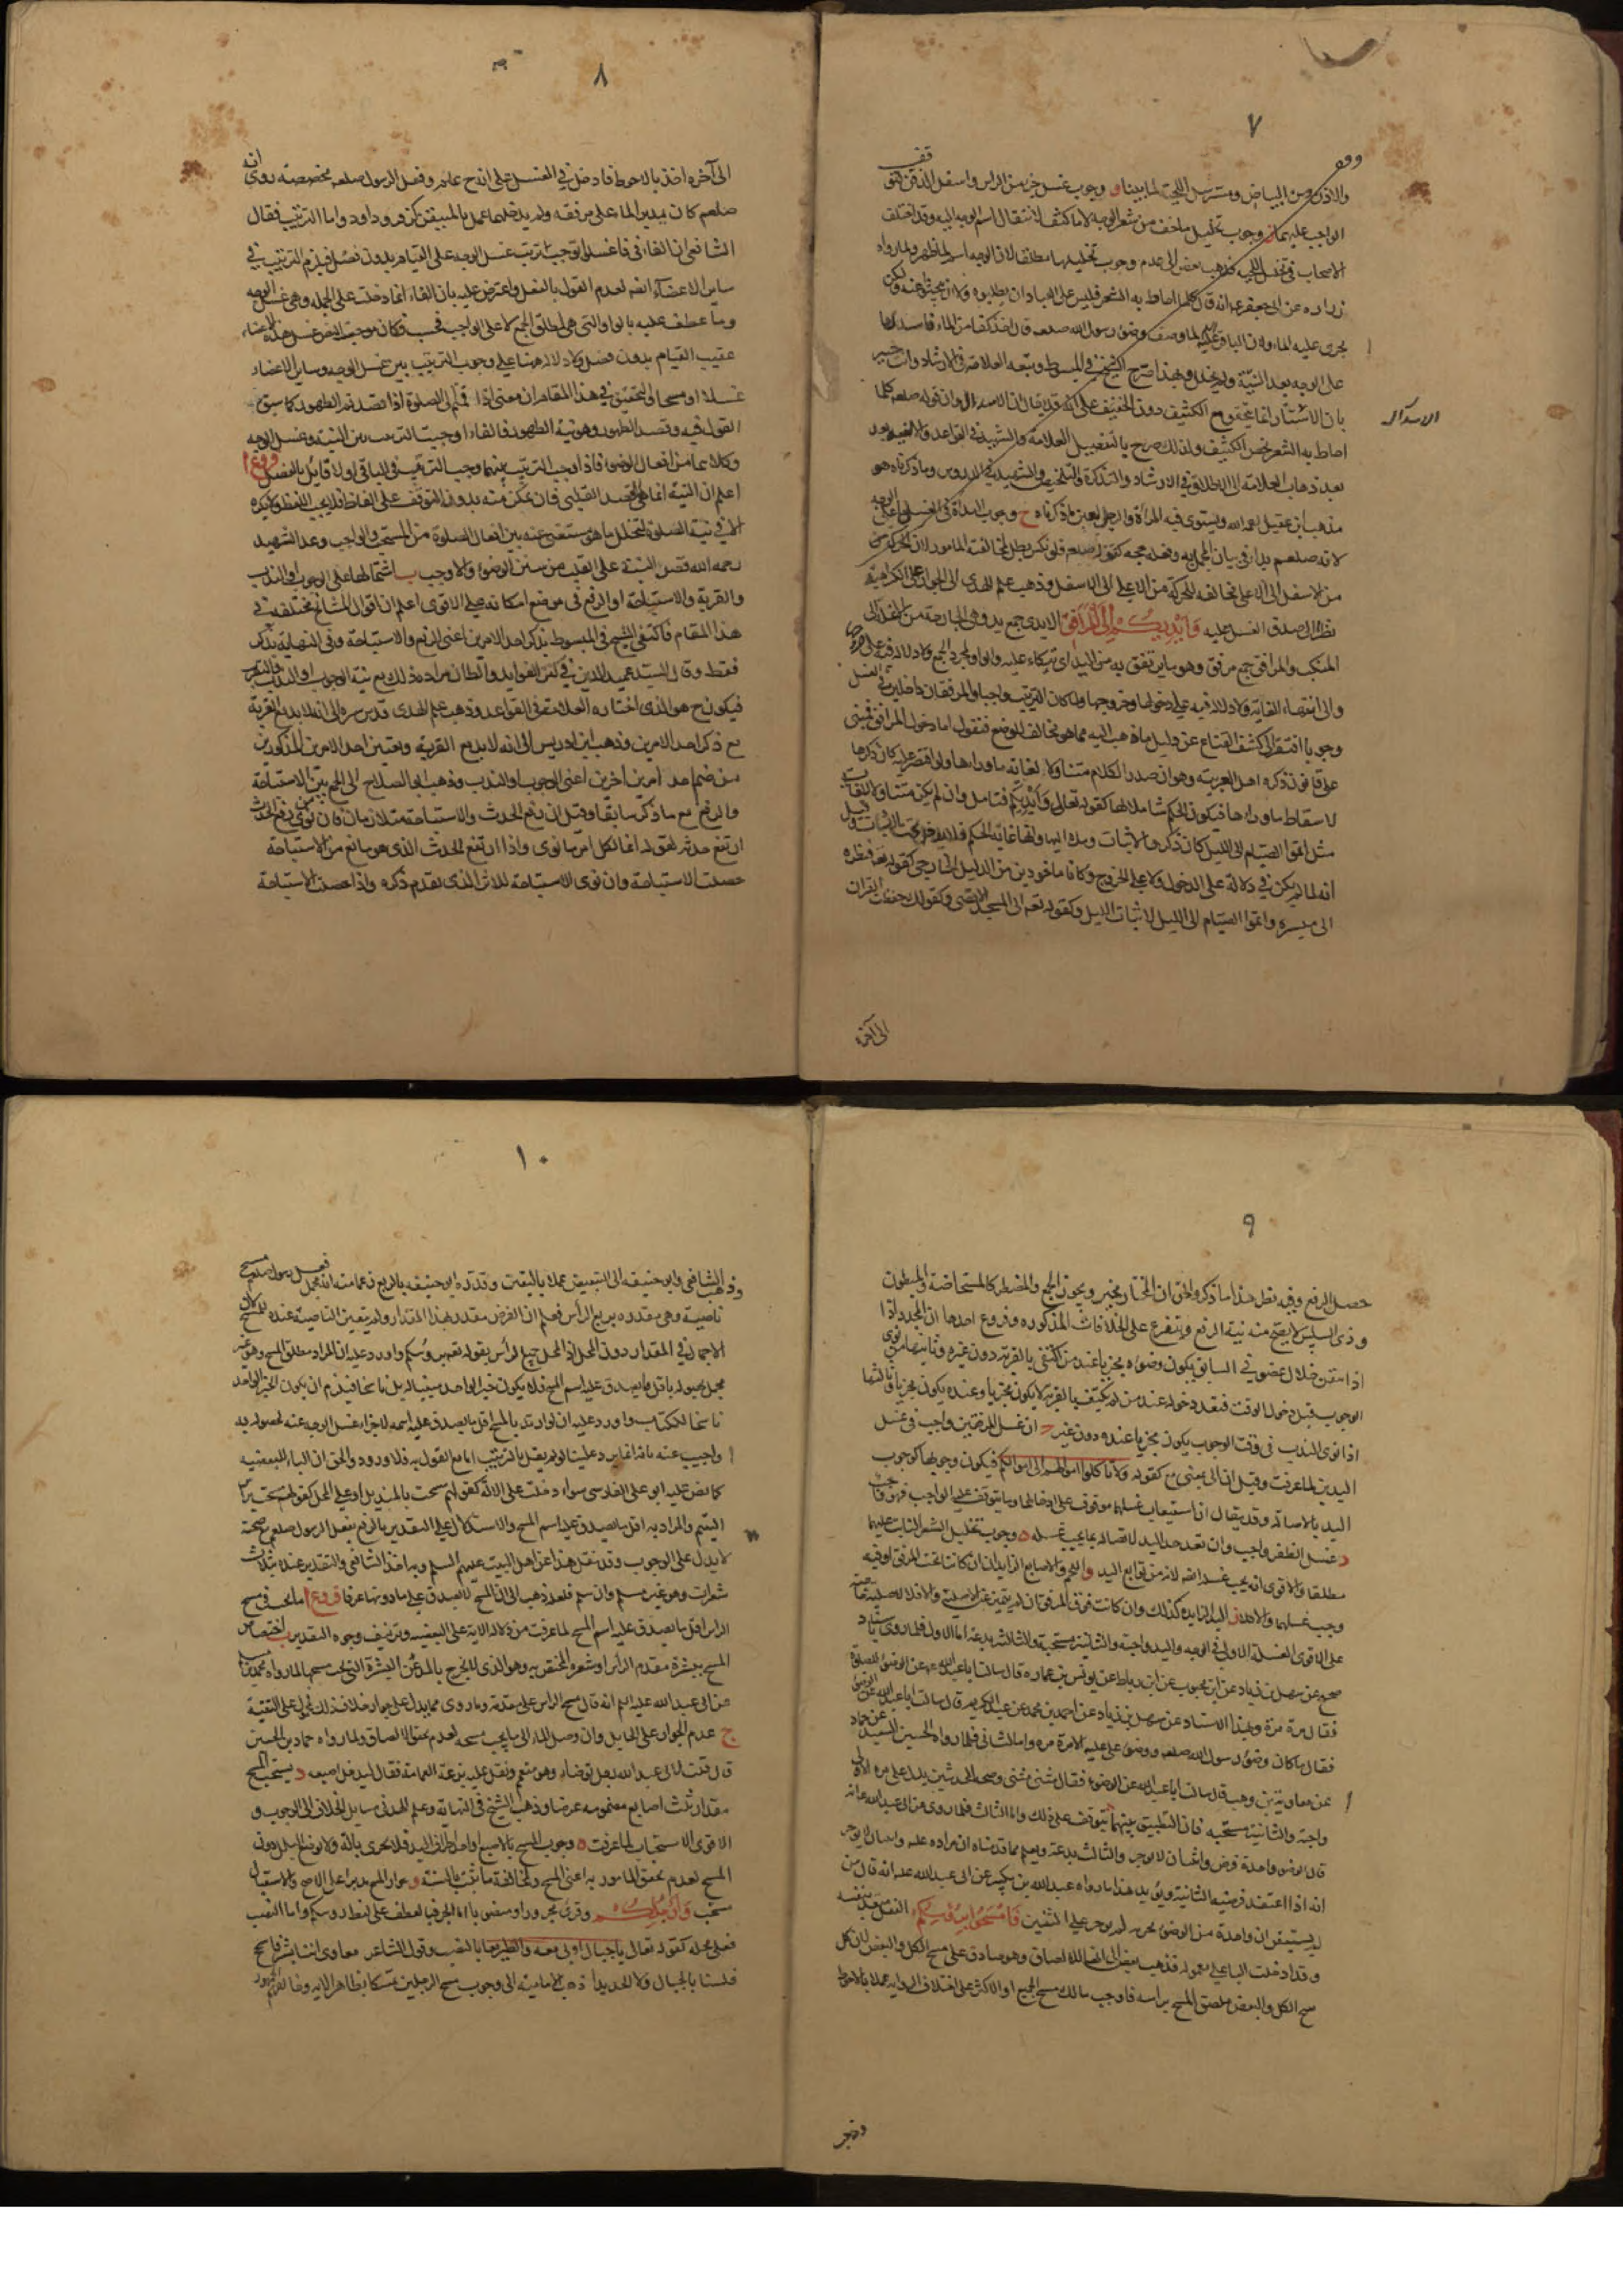 ٧
والاذن من البياض ومسترسل اللحية لما بينا وجوب غسل جزء من الراس واسفل الذقن لتوقف
الواجب عليهما وجوب تخليل ما خف من شعر الوجه لا ما كثف لانتقال اسم الوجه اليه وقد اختلف
الاصحاب في تخليل اللحية فذهب بعض الى عدم وجوب تخليلها مطلقا لان الوجه اسم لما ظهر ولما رواه
زراره عن ابي جعفر انه قال كلما احاط به الشعر فليس على العباد ان يطلبوه ولا ان يبحثوا عنه ولكن
يجري عليه الماء ولان الباقر لما وصف وضوء رسول الله صلعم قال اخذ كفا من الماء فاسدلها
على الوجه بعد النية ولم يخلل وبهذا صرح الشيخ في المبسوط وتبعه العلامة في الارشاد وانت خبير
بان الاستتار انما يتحقق مع الكثيف دون الخفيف
احاط به الشعر يخص الكثيف ولذلك صرح بالتفصيل العلامة والشهيد في القواعد
بعد ذهاب العلامة الى الاطلاق في الارشاد والتذكرة والتلخيص والشهيد في الدروس وما ذكرناه هو
مذهب ابن عقيل رحمه الله ويستوي فيه المرأة والرجل بعين ما ذكرناه ح وجوب البدأة في الغسل باعلى الوجه
لانه صلعم بدا به في بيان المجمل به وفعله حجة كقوله صلعم فلو نكس بطل لمخالفته المامور لان الحركة من
من الاسفل الى الاعلى مخالفه للحركة من الاعلى الى الاسفل وذهب علم الهدى الى الجواز على الكراهية
نظرا الى صدق الغسل عليه وَاَيْدِيَكُمْ اِلَى الْمَرَافِقِ الايدي جمع يد وهي الجارحة من
المنكب والمرافق جمع مرفق وهو ما يرتفق به من اليد اي يتكاء عليه والواو لمجرد الجمع ولا دلالة فيه على
والى انتهاء الغاية ولا دلالة فيه على دخولها وخروجها ولما كان الترتيب واجبا والمرفقان داخلين في الغسل
وجوبا افتقر الى كشف القناع عن دليل ما ذهب اليه مما هو مخالف للوضع فنقول اما دخول المرافق فمبني
على قانون ذكره اهل العربية وهو ان صدر الكلام متناولا لغاية ما وراءها ولو اقتصر عليه كان ذكرها
لاسقاط ما وراءها فيكون الحكم شاملا لها كقوله تعالى وايديكم فتامل وان لم يكن متناولا للغاية
مثل اتموا الصيام الى الليل كان ذكر
انه لما لم يكن في دلالة على الدخول ولا على الخروج وكانا ماخوذين من الدليل الخارجي كقوله تعه فنظرة
الى ميسرة واتموا الصيام الى الليل لاثبات الليل وكقوله تعه الى المسجد الاقصى وكقولك حفظت القران
الى آخره
٨
الى آخره اخذ بالاحوط فادخل في الغسل على انه ح علم وفعل الرسول صلعم مخصصة روى انه
صلعم كان يدير الماء على مرفقه ولم يدخلهما عملا بالمتيقن كزفر وداود واما الترتيب فقال
الشافعي ان الفاء في فاغسلوا توجب ترتب غسل الوجه على القيام بدون فصل فيلزم الترتيب في
ساير الاعضآء ايضا لعدم القول بالفصل واعترض عليه بان الفاء انما دخلت على الجملة وهي غسل الوجه
وما عطف عليه بالواو التي هي لمطلق الجمع لا على الواجب فحسب فكان موجب النص غسل هذه الاعضاء
عقيب القيام بدون فصل ولا دلالة هنا على وجوب الترتيب بين غسل الوجه وساير الاعضاء
غسلا او مسحا والتحقيق في هذا المقام ان معنى اذا قمتم الى الصلوة اذا قصدتم الطهور كما سبق
القول فيه وقصد الطهور وهو نية الطهور فالفاء اوجبت الترتيب بين النية وغسل الوجه
وكلاهما من افعال الوضوء فاذا وجب الترتيب بينهما وجب الترتيب في الباقي اولا قايل بالفصل فروع ا
اعلم ان النية انما هي القصد القلبي فان تمكن منه بدون التوقف على الفاظ فلا يجب اللفظ ولا يكره
الا في نية الصلوة لتخلل ما هو مستغنى عنه بين افعال الصلوة من المستحب والواجب وعد الشهيد
رحمه الله قصر النية على القلب من سنن الوضوء والاوجب ب اشتمالها على الوجوب او الندب
والقربة والاستباحة او الرفع في موضع امكانه على الاقوى اعلم ان اقوال المشايخ مختلفة في
هذا المقام فاكتفى الشيخ في المبسوط بذكر احد الامرين اعني الرفع والاستباحة وفي النهاية بذكر
فقط وقال السيد عميد الدين في كنز الفوايد والظان مراده ذلك مع نية الوجوب او الندب
فيكون ح هو الذي اختاره العلامة في القواعد وذهب علم الهدى قدس سره الى انه لا بد مع القربة
مع ذكر احد الامرين وذهب ابن ادريس الى انه لا بد مع القربة وتعيين احد الامرين المذكورين
من ضم احد امرين اخرين اعني الوجوب او الندب وذهب ابو الصلاح الى الجمع بين الاستباحة
والرفع مع ما ذكر سابقا وقيل ان رفع الحدث والاستباحة متلازمان فان من نوى رفع الحدث
ارتفع حدثه لقوله انما لكل امرء ما نوى واذا ارتفع الحدث الذي هو مانع من الاستباحة
حصلت الاستباحة وان نوى الاستباحة للاثر الذي تقدم ذكره واذا حصلت الاستباحة
٩
حصل الرفع وفيه نظر هذا ما ذكر والحق ان المختار يخير ويجوز الجمع والمضطر كالمستحاضة والمبطون
وذي السلس لا يصح منه نية الرفع ويتفرع على الخلافات المذكوره فروع احدها ان المجدد اذا
اذا تيقن خلل عضو في السابق يكون وضوءه مجزيا عند من اكتفى بالقربة دون غيره وثانيها من نوى
الوجوب قبل دخول الوقت فبعد دخوله عند من لم يكتف بالقربة لا يكون مجزيا وعنده يكون مجزيا وثالثها
اذا نوى الندب في وقت الوجوب يكون مجزيا عنده دون غيره ج ان غسل المرفقين واجب في غسل
اليدين لما عرفت وقيل ان الى بمعنى مع كقوله ولا تاكلوا اموالهم الى اموالكم فيكون وجوبها كوجوب
اليد بالاصالة وقد يقال ان استيعاب غسلها موقوف على ادخالها وما يتوقف عليه الواجب فهو واجب
د غسل الظفر واجب وان تعد حد اليد لاتصاله بما يجب غسله ه وجوب تخليل الشعر الثابت عليها
مطلقا والاقوى انه يجب غسله ايضا لانه من توابع اليد و واللحم والاصابع الزايدان ان كانا تحت المرفق او فيه
وجب غسلهما والا فلا ز اليد الزايده كذلك وان كانت فوق المرفق ان لم يتميز عن الاصلية والا فلا
على الاقوى الغسلة الاولى في الوجه واليد واجبة والثانية مستحبة والثالثة بدعة اما الاول فلما روى باسناد
صحيح عن سهل بن زياد عن ابن محبوب عن ابن رباط عن يونس بن عمار ه قال سالت ابا عبد الله عن الوضوء للصلوة
فقال مرة مرة وبهذا الاسناد عن سهل بن زياد عن احمد بن محمد عن عبد الكريم قال سالت ابا عبد الله عن الوضوء
فقال ما كان وضوء رسول الله صلعم ووضوء علي عليه الا مرة مره واما الثاني فلما رواه الحسين السعيد عن حماد
عن معاوية بن وهب قال سالت ابا عبد الله عن الوضوء فقال مثنى مثنى وصحة الحديثين يدل على مره الاولى
واجبة والثانية مستحبه فان التطبيق بينهما يتوقف على ذلك واما الثالث فلما روى عن ابي عبد الله عه انه
قال الوضوء واحدة فرض واثنتان لا يوجر والثالث بدعة
انه اذا اعتقد فرضية الثانية ويؤيد هذا ما رواه عبد الله بن بكير عن ابي عبد الله عه انه قال من
لم يستيقن ان واحدة من الوضوء تجزيه لم يوجر على الثنتين فَامْسَحُوا بِرُؤُسِكُمْ
وقد ادخلت الباء على معموله فذهب بعض الى انها للالصاق وهو صادق على مسح الكل والبعض لان كل
مسح الكل والبعض ملصق المسح براسه فاوجب مالك مسح الجميع او الاكثر على اختلاف الرواية عملا بالاحوط
وذهب
١٠
وذهب الشافعي وابو حنيفه الى التبعيض عملا باليقين وقدره ابو حنيفه بالربع
ناصيته وهي مقدره بربع الراس فعلم ان الفرض مقدر بهذا المقدار ولم يتعين الناصية عنده للمسح
الاجمال في المقدار دون المحل اذ المحل جميع الراس بقوله تعه برؤسكم واورد عليه ان المراد مطلق المسح وهو غير
مجمل لحصوله باقل ما يصدق عليه اسم المسح فلا يكون خبر الواحد مبينا له بل ناسخا فيلزم ان يكون الخبر الواحد
ناسخا للكتاب واورد عليه ان لو اريد بالمسح اقل ما يصدق عليه اسمه لاجزاء غسل الوجه عنه لحصوله به
واجيب عنه بانه انما يرد علينا لو لم يقل بالترتيب اما مع القول به فلا ورود والحق ان الباء للتبعيضيه
كما نص عليه ابو علي الفارسي سواء دخلت على الآلة كقولهم مسحت بالمنديل او على المحل كقولهم مسحت براس
اليتيم والمراد به اقل ما يصدق عليه اسم المسح والاستدلال على التقدير بالربع بفعل الرسول صلعم مع صحته
لا يدل على الوجوب وقد نقل هذا عن اهل البيت عليهم السلم وبه اخذ الشافعي والتقدير عنده بثلاث
شعرات وهو غير مسلم وان سلم فلعله ذهب الى ان المسح لا يصدق على ما دونها عرفا فروع ا ما يجب في مسح
الراس اقل ما يصدق عليه اسم المسح لما عرفت من دلالة الاية على التبعيضيه وتزييف وجوه التقدير ب اختصاص
المسح ببشرة مقدم الراس او شعره المختص به وهو الذي لا يخرج بالمد عن البشرة التي تحت مسحها لما رواه محمد بن مسلم
عن ابي عبد الله عليه السلم انه قال مسح الراس على مقدمه وما روى مما يدل على جواز خلاف ذلك محمول على التقية
ج عدم الجواز على الحايل وان وصل الماء الى ما يجب مسحه لعدم تحقق الالصاق ولما رواه حماد بن الحسين
قال قلت لابي عبد الله رجل توضاء وهو متعمم وثقل عليه نزع العمامة فقال ليدخل اصبعه د يستحب المسح
مقدار ثلث اصابع مضمومه عرضا وذهب الشيخ في النهاية وعلم الهدى في مسايل الخلاف الى الوجوب و
الاقوى الاستحباب لما عرفت ه وجوب المسح بالاصبع او احد اطراف اليد فلا يجزى بالة ولا بوضع البلل دون
المسح لعدم تحقق المامور به اعني المسح ولمخالفة ما ثبت بالسنة و جواز المسح مدبرا على الاصح والاستقبال
مستحب وَاَرْجُلَكُمْ وقرئ مجرورا ومنصوبا اما الجر فبالعطف على لفظ رؤسكم واما النصب
فعلى محله كقوله تعالى يا جبال اوبي معه والطير بعا بالنصب وقول الشاعر معاوي اننا بشر فاسجح
فلسنا بالجبال ولا الحديدا ذهب الامامية الى وجوب مسح الرجلين تمسكا بظاهر الايه وخالفهم الجمهور